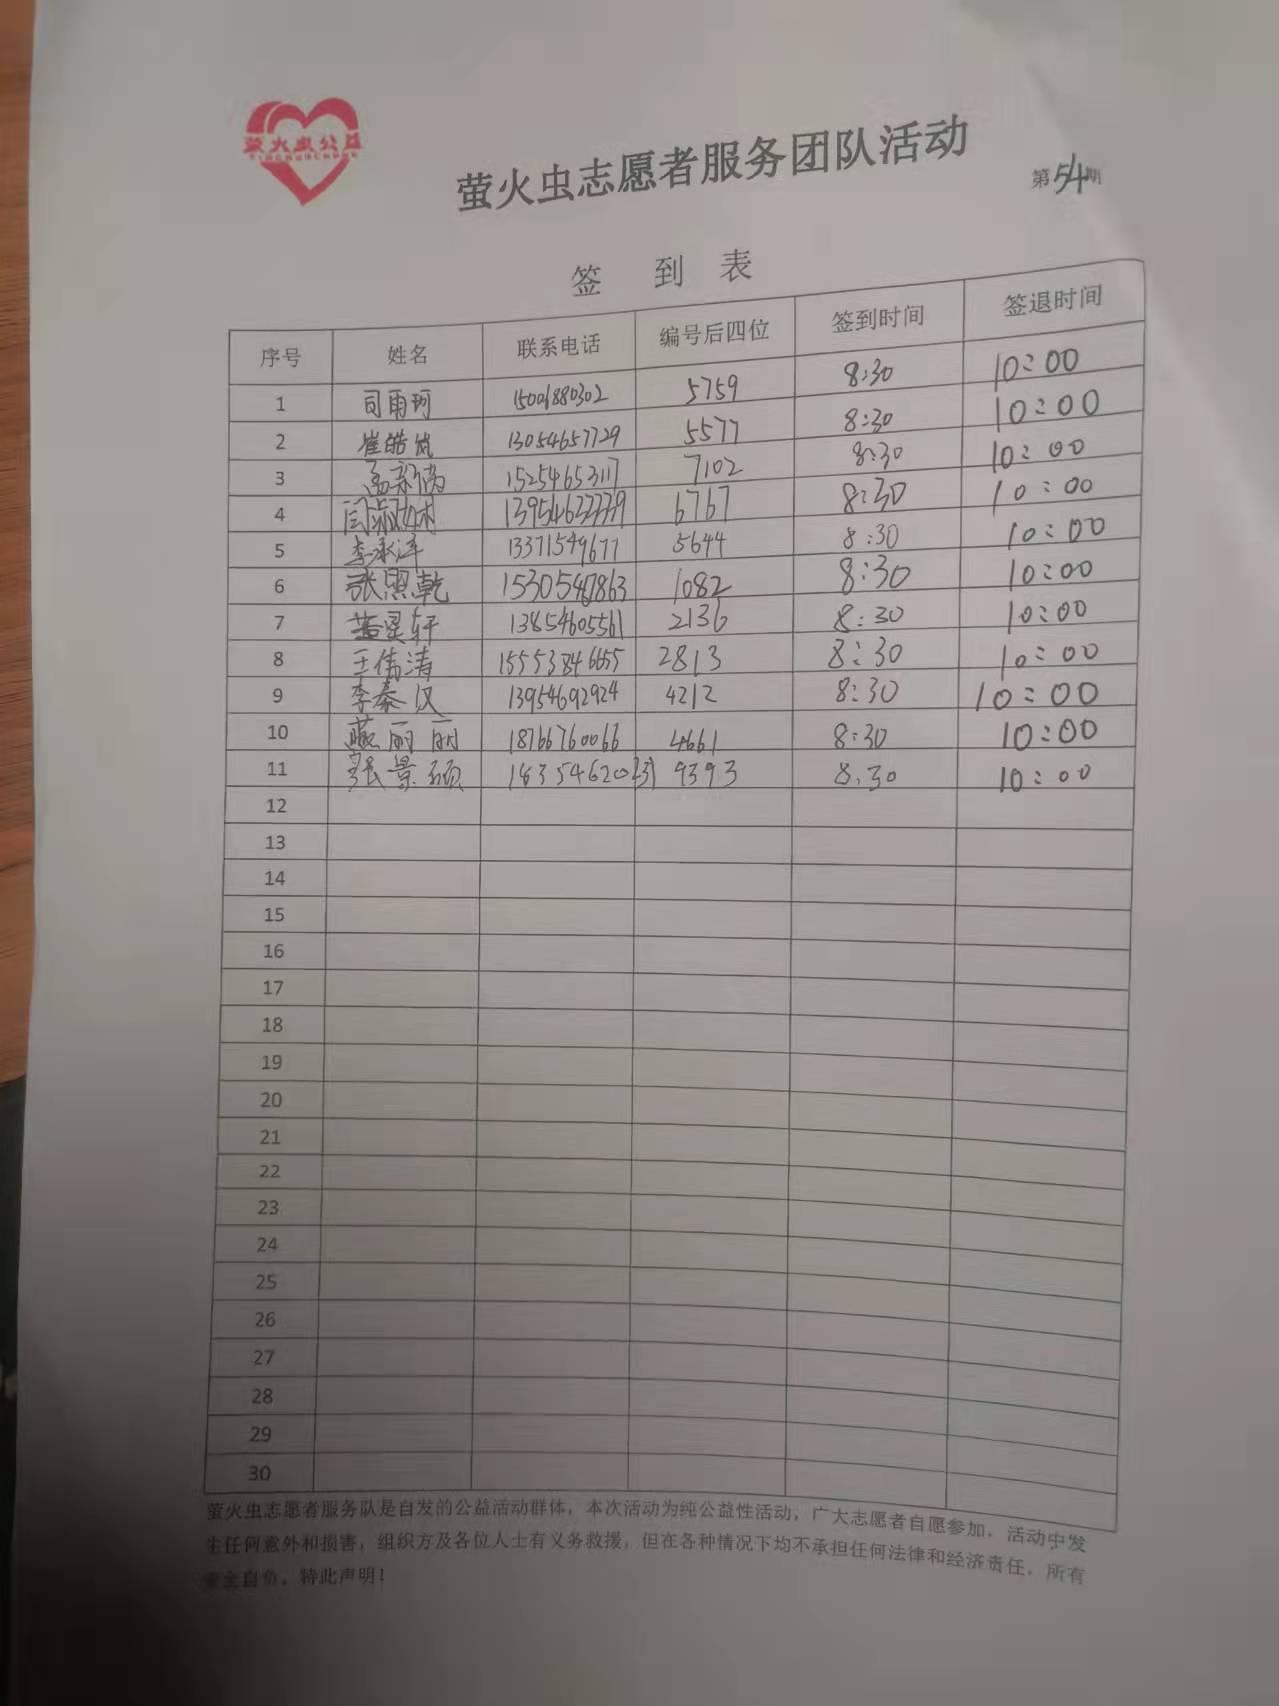 萤火虫公益
萤火虫志愿者服务团队活动
第54期
签 到 表
序号 姓名 联系电话 编号后四位 签到时间 签退时间
1 司雨珂 15001880302 5759 8:30 10:00
2 崔皓岚 13054657729 5577 8:30 10:00
3 15254653117 7102 8:30 10:00
4 6767 8:30 10:00
5 李承泽 13371549677 5644 8:30 10:00
6 张照乾 1082 8:30 10:00
7 13854605561 2136 8:30 10:00
8 王伟涛 15553846655 2813 8:30 10:00
9 李秦汉 13954692924 4212 8:30 10:00
10 燕丽丽 18766760066 4661 8:30 10:00
11 张景硕 9393 8:30 10:00
12
13
14
15
16
17
18
19
20
21
22
23
24
25
26
27
28
29
30
萤火虫志愿者服务队是自发的公益活动群体，本次活动为纯公益性活动，广大志愿者自愿参加，活动中发
生任何意外和损害，组织方及各位人士有义务救援，但在各种情况下均不承担任何法律和经济责任，所有
安全自负，特此声明！